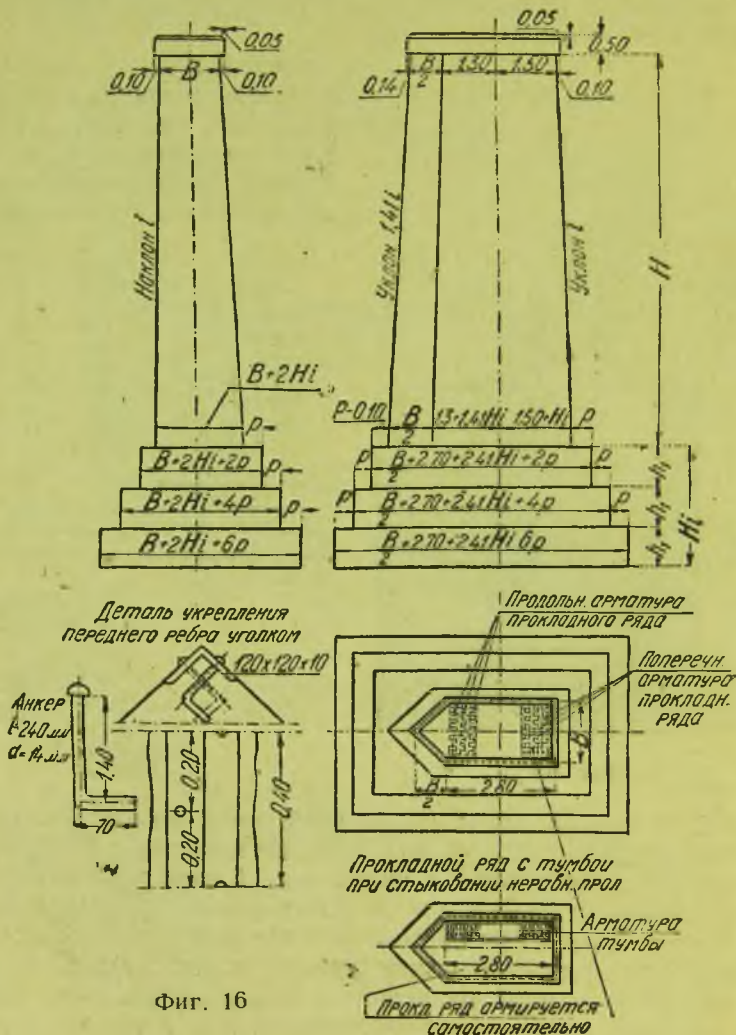 0,05
0,10 B 0,10
Наклон i
B+2Hi
p
B+2Hi+2p
p
B+2Hi+4p
p
B+2Hi+6p
0,05
0,50
0,14 B/2 1.30 1.50 0,10
Уклон 1,41i
Уклон i
H
P-0.10 B/2 1.3+1.41Hi 1.50+Hi p
p B/2+2.70+2.41Hi+2p p
p B/2+2.70+2.41Hi+4p p
B+2.70+2.41Hi 6p
h₁
h₁
h₁
Hi
Деталь укрепления
переднего ребра уголком
120х120х10
Анкер
240 мм
d=14мм
1.40
70
0.20
0.20
0.40
Продольн. арматура
прокладного ряда
Поперечн.
арматура
прокладн.
ряда
B
B/2 2.80
Прокладной ряд с тумбой
при стыковании неравн. прол
Арматура
тумбы
2.80
Прокл. ряд армируется
самостоятельно
Фиг. 16